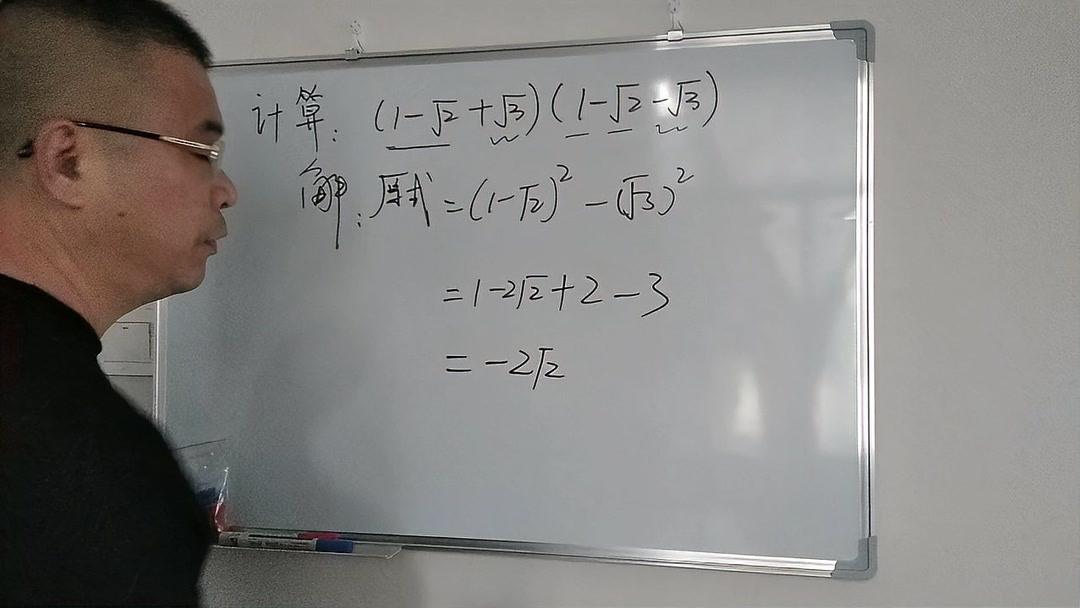 计算: (1-√2+√3)(1-√2-√3)
解: 原式=(1-√2)²-(√3)²
=1-2√2+2-3
=-2√2